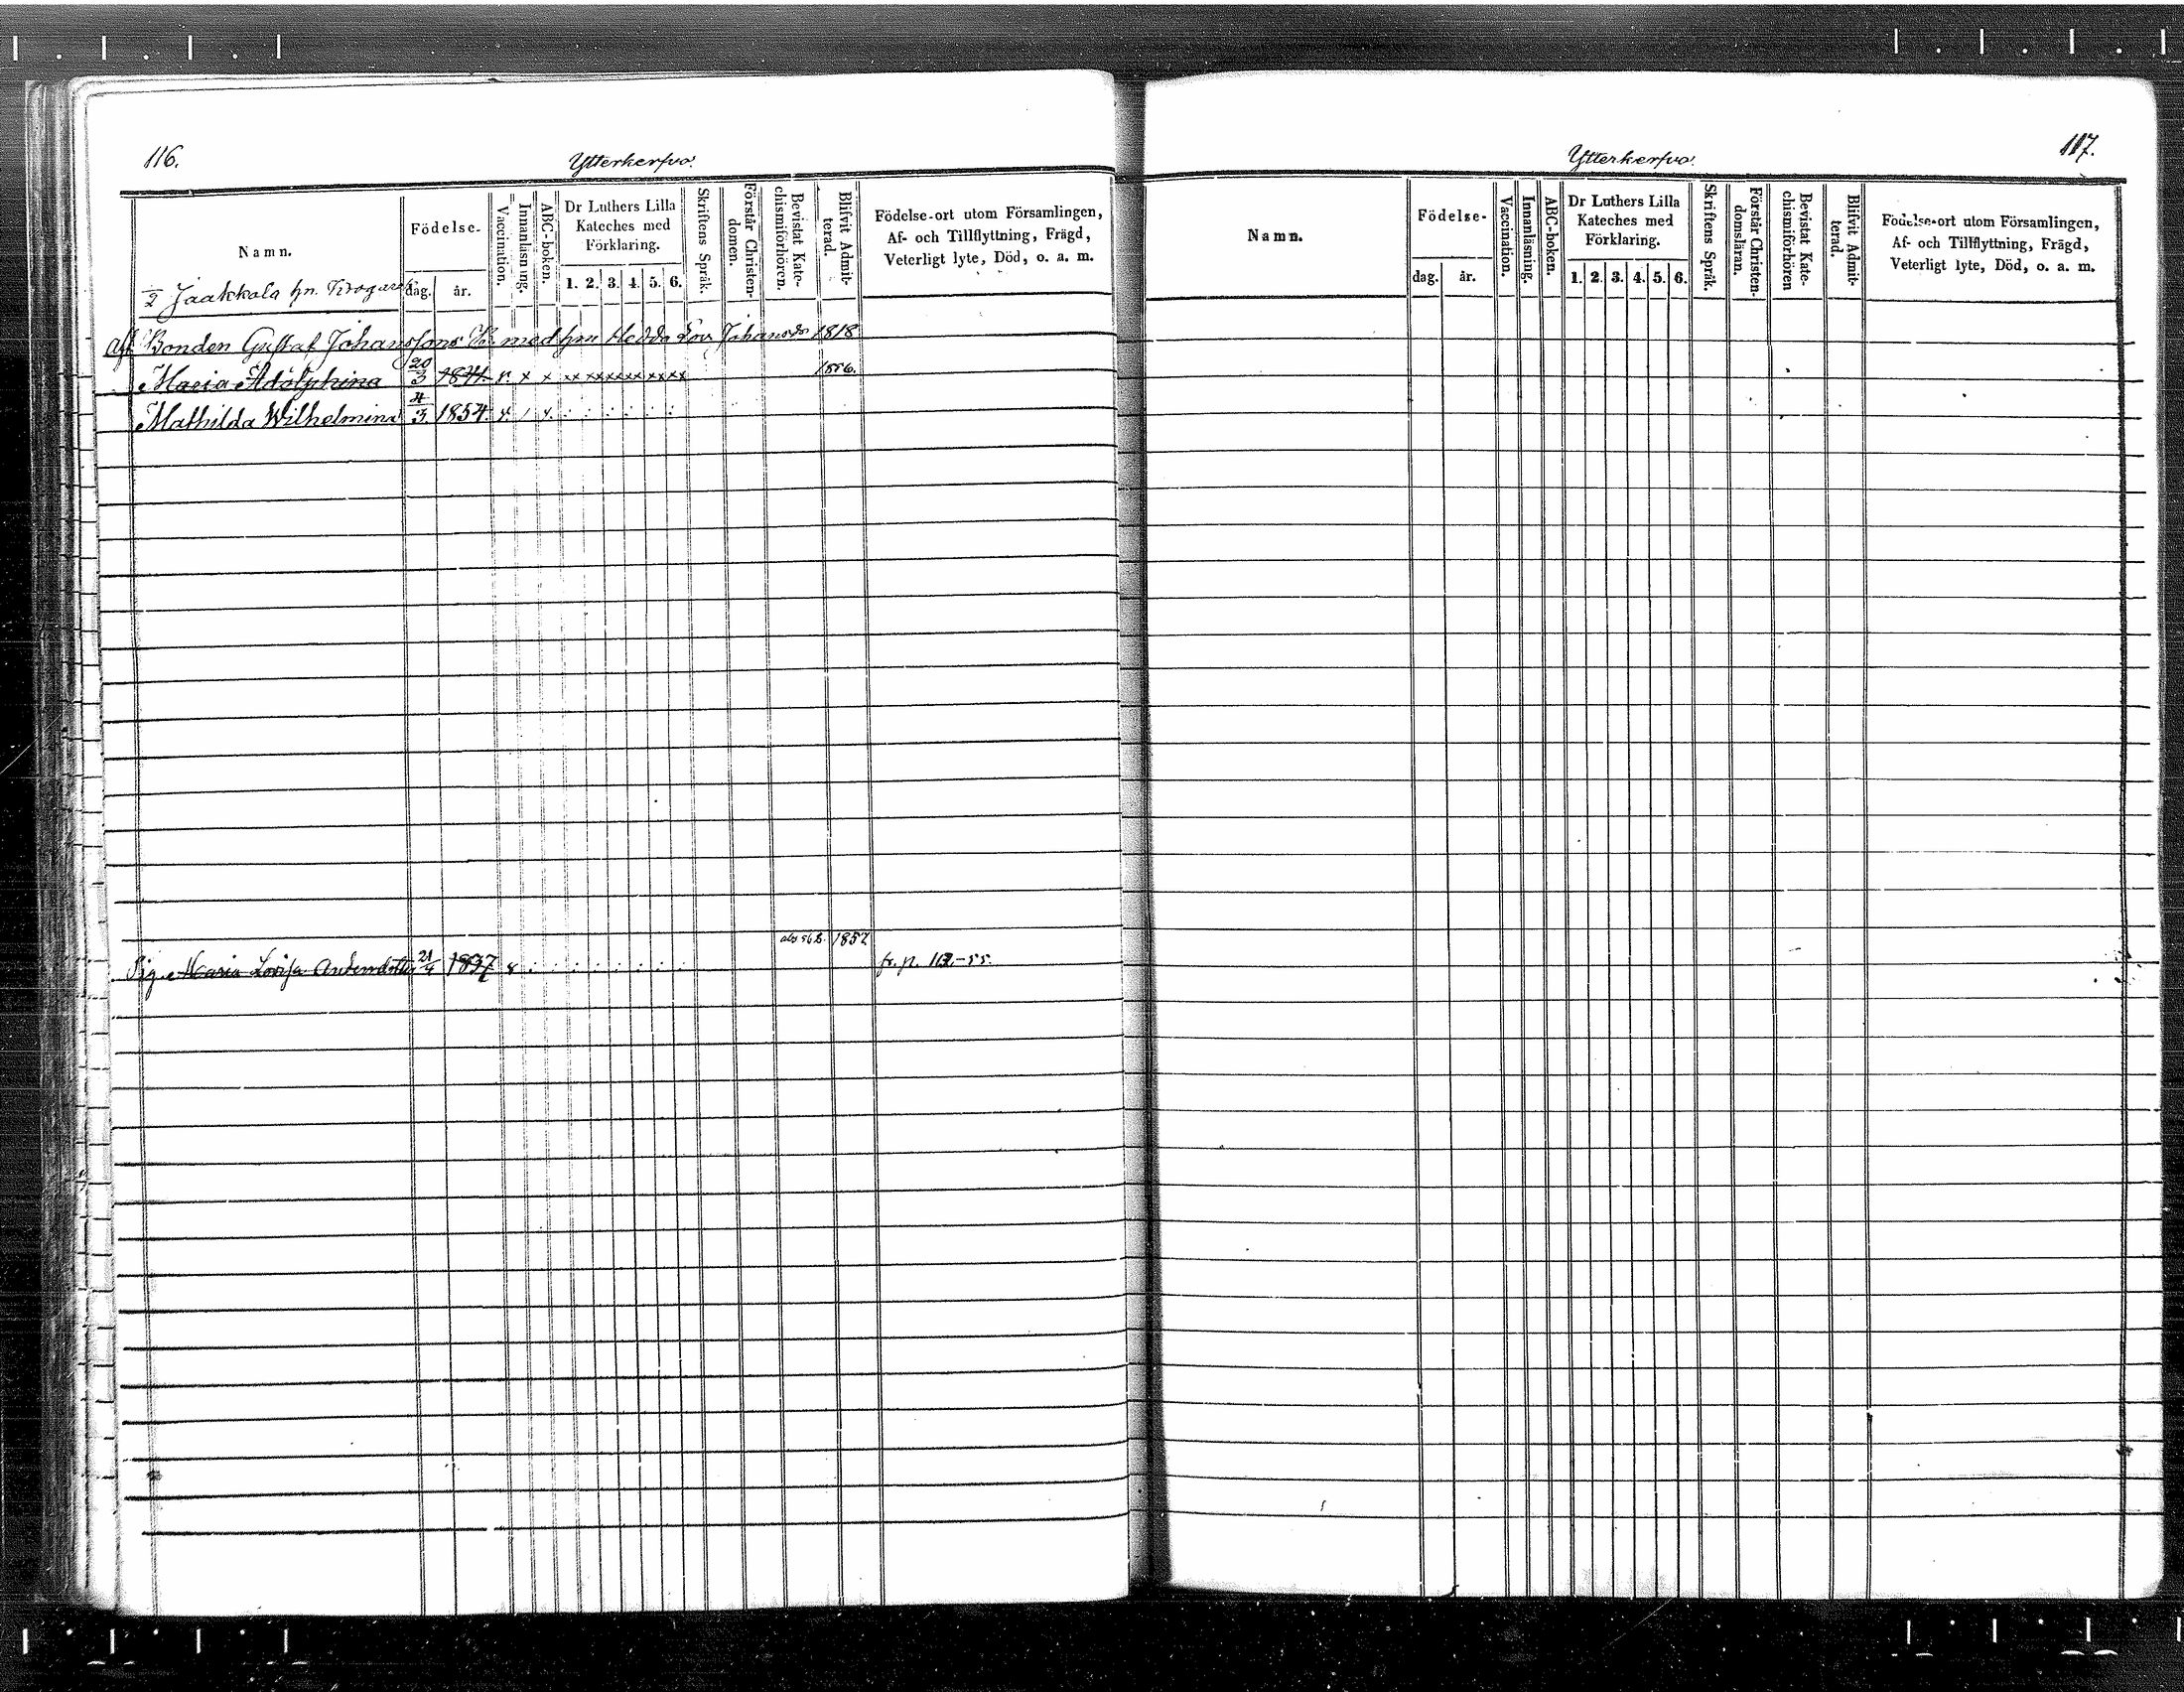 116.
Ytterkerfvo.
Namn.
Födelse-
dag. år.
Vaccination.
Innanläsning.
ABC-boken.
Dr Luthers Lilla
Kateches med
Förklaring.
1. 2. 3. 4. 5. 6.
Skriftens Språk.
Förstår Christen-
domen.
Bevistat Kate-
chismiförhören.
Blifvit Admit-
terad.
Födelse-ort utom Församlingen,
Af- och Tillflyttning, Frägd,
Veterligt lyte, Död, o. a. m.
1/2 Jaakkala hn.
Afl. Bonden Gustaf Johanssons med hru Hedda Lov. Johansdr 1818.
Maria Adolphina 20/3 1841. v. x x xx xx xx xx xx xx 1856.
Mathilda Wilhelmina 4/3. 1854. v. / v. : : : : : :
abs 1857
Pig. Maria Lovisa Andersdotter 21/4 1837 v : : : : : : : fr. p. 112.-55.
Ytterkerfvo.
117.
Namn.
Födelse-
dag. år.
Vaccination.
Innanläsning.
ABC-boken.
Dr Luthers Lilla
Kateches med
Förklaring.
1. 2. 3. 4. 5. 6.
Skriftens Språk.
Förstår Christen-
domsläran.
Bevistat Kate-
chismiförhören
Blifvit Admit-
terad.
Födelse-ort utom Församlingen,
Af- och Tillflyttning, Frägd,
Veterligt lyte, Död, o. a. m.